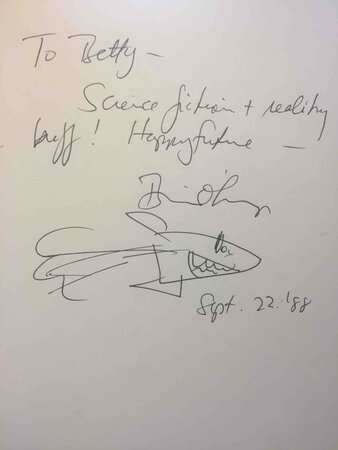 To Betty —
Science fiction + reality
buff! Happy future —
Sept. 22. '88